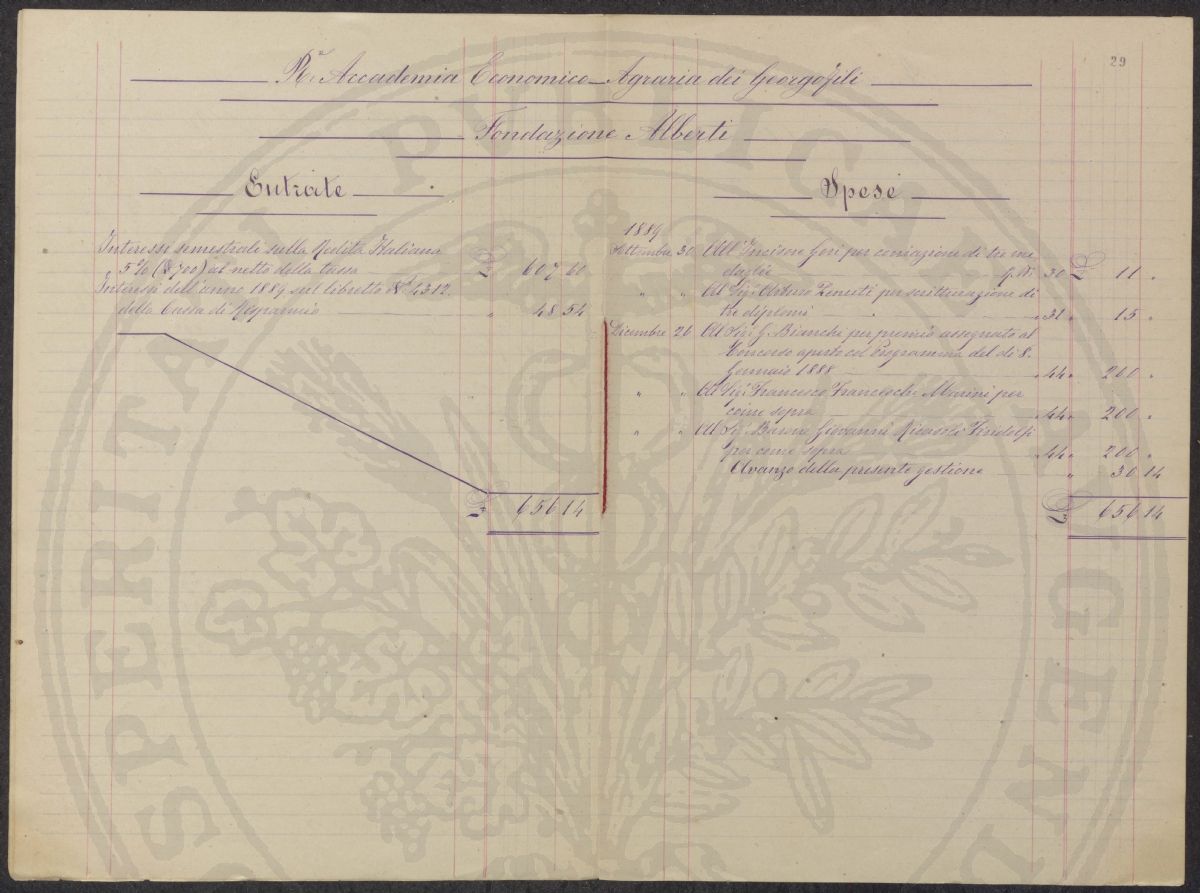 29
R. Accademia Economico-Agraria dei Georgofili
Fondazione Alberti
Entrate
Interessi semestrali sulla Rendita Italiana
5% (£ 700) al netto della tassa £ 607 60
Interessi dell'anno 1889 sul libretto N° 1312
della Cassa di Risparmio " 48 54
£ 656 14
Spese
1889
Settembre 30 All'Incisore Gori per coniazione di tre me
daglie G.N. 30 £ 11 "
" " Al Sig. Arturo per scritturazione di
tre diplomi " 31 " 15 "
Dicembre 26 Al Sig. G. Bianchi per premio assegnato al
Concorso aperto col Programma del dì 8
Gennaio 1888 " 44 " 200 "
" " Al Sig. Francesco Franceschi Marini per
come sopra " 44 " 200 "
" " Al Sig. Barone Giovanni Ricasoli Firidolfi
per come sopra " 44 " 200 "
Avanzo della presente gestione " 30 14
£ 656 14
PROSPERITATI PUBLICAE AVGENDAE